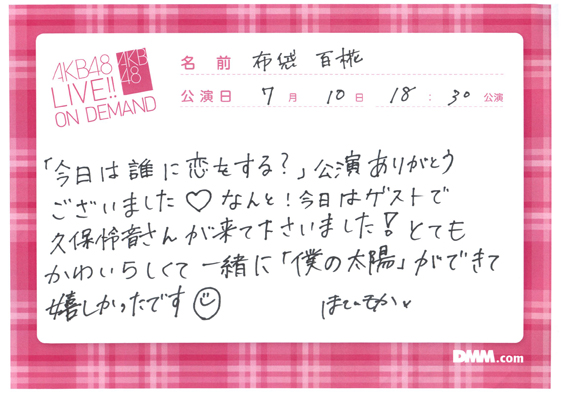 AKB48
LIVE!!
ON DEMAND
AKB
48
名前 布袋 百椛
公演日 7月 10日 18:30 公演
「今日は誰に恋をする?」公演ありがとう
ございました♡なんと!今日はゲストで
久保怜音さんが来て下さいました!とても
かわいらしくて一緒に「僕の太陽」ができて
嬉しかったです☺ ほていもか
DMM.com